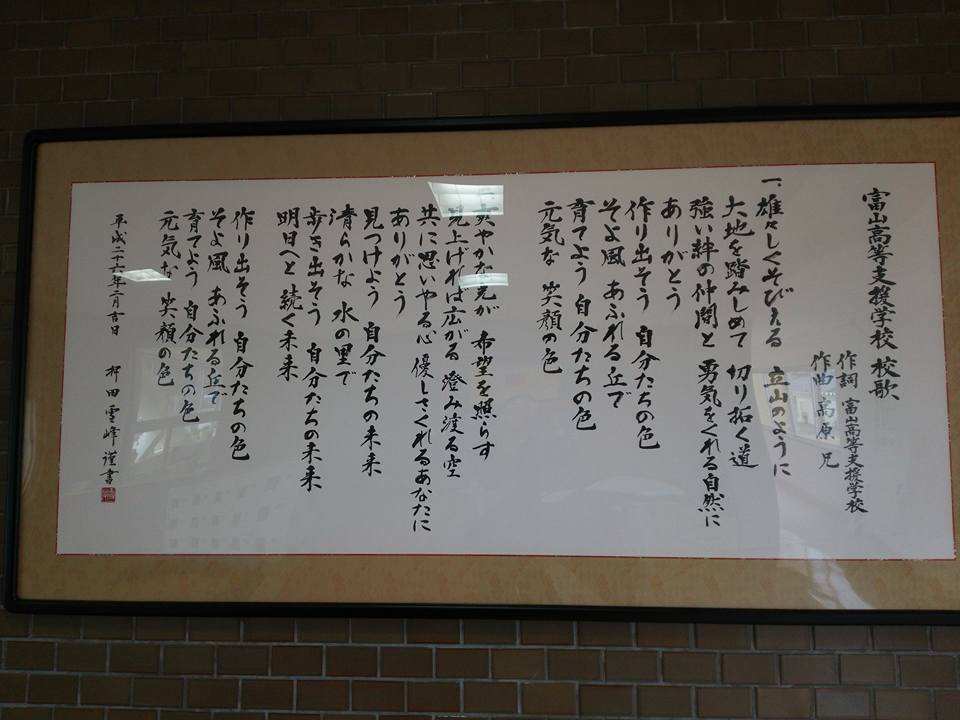 富山高等支援学校 校歌
作詞 富山高等支援学校
作曲 高原 兄
一、雄々しくそびえる 立山のように
大地を踏みしめて 切り拓く道
強い絆の仲間と 勇気をくれる自然に
ありがとう
作り出そう 自分たちの色
そよ風 あふれる丘で
育てよう 自分たちの色
元気な 笑顔の色
爽やかな光が 希望を照らす
見上げれば広がる 澄み渡る空
共に思いやる心 優しさくれるあなたに
ありがとう
見つけよう 自分たちの未来
清らかな 水の里で
歩き出そう 自分たちの未来
明日へと 続く未来
作り出そう 自分たちの色
そよ風 あふれる丘で
育てよう 自分たちの色
元気な 笑顔の色
平成二十六年二月吉日 押田雪峰謹書